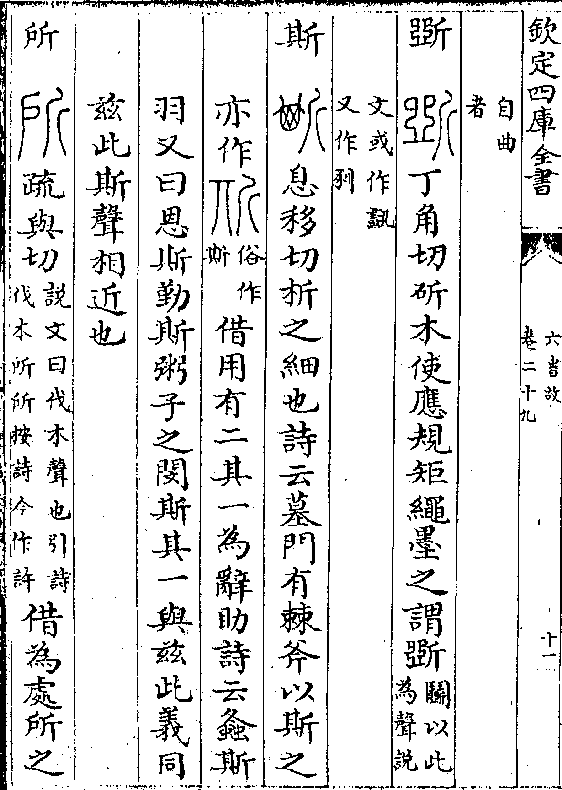 欽定四庫全書
六書故
卷二十九
十一
自曲
者
斵 丁角切斫木使應規矩繩墨之謂斵 鬭以此
為聲說
文或作𣃈
又作㓸
斯 息移切析之細也詩云墓門有棘斧以斯之
亦作 俗作
斯 借用有二其一為辭助詩云螽斯
羽又曰恩斯勤斯粥子之閔斯其一與兹此義同
兹此斯聲相近也
所 疏與切 說文曰伐木聲也引詩
伐木所所按詩今作許 借為處所之